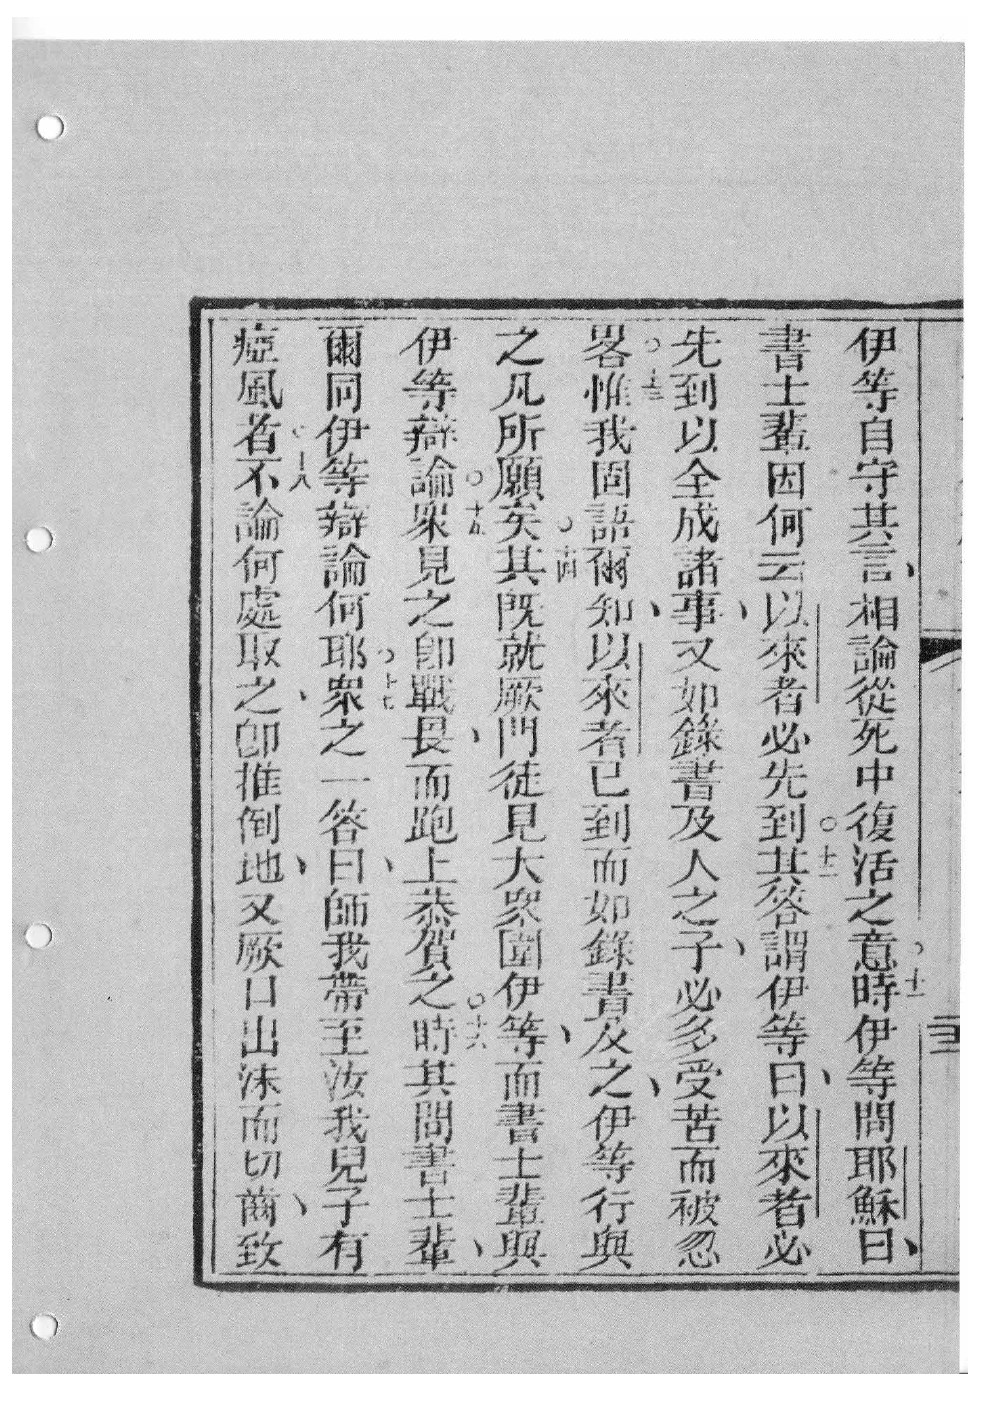 伊等自守其言、相論從死中復活之意○十一時伊等問耶穌曰、
書士輩因何云以來者必先到○十二其答謂伊等曰、以來者必
先到以全成諸事、又如錄書及人之子、必多受苦而被忽
畧○十三惟我固語爾知、以來者已到而如錄書及之、伊等行與
之凡所願矣○十四其旣就厥門徒見大眾圍伊等、而書士輩與
伊等辯論○十五眾見之卽戰畏、而跑上恭賀之○十六時其問書士輩、
爾同伊等辯論何耶○十七眾之一答曰、師我帶至汝我兒子有
瘂風者○十八不論何處取之、卽推倒地、又厥口出沫而切齒、致